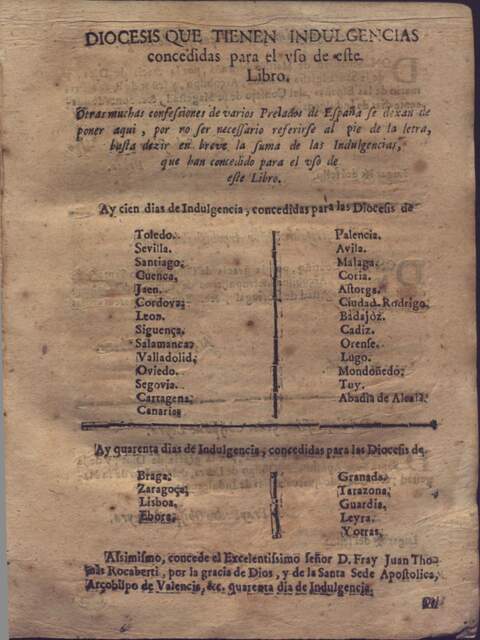 DIOCESIS QUE TIENEN INDULGENCIAS
concedidas para el vso de este
Libro.
Otras muchas confessiones de varios Prelados de España se dexan de
poner aqui, por no ser necessario referirse al pie de la letra,
basta dezir en breve la suma de las Indulgencias,
que han concedido para el vso de
este Libro.
Ay cien dias de Indulgencia, concedidas para las Diocesis de
Toledo.
Sevilla.
Santiago.
Cuenca,
Jaen.
Cordova,
Leon.
Siguença.
Salamanca,
Valladolid,
Oviedo.
Segovia.
Cartagena,
Canarias
Palencia.
Avila.
Malaga.
Coria.
Astorga.
Ciudad-Rodrigo,
Badajòz.
Cadiz.
Orense.
Lugo.
Mondoñedo,
Tuy.
Abadia de Alcalà.
Ay quarenta dias de Indulgencia, concedidas para las Diocesis de
Braga,
Zaragoça,
Lisboa.
Ebora,
Granada.
Tarazona,
Guardia,
Leyra.
Y otras.
Assimismo, concede el Excelentissimo señor D. Fray Juan Tho-
màs Rocaberti, por la gracia de Dios, y de la Santa Sede Apostolica,
Arçobispo de Valencia, &c. quarenta dia de Indulgencia.